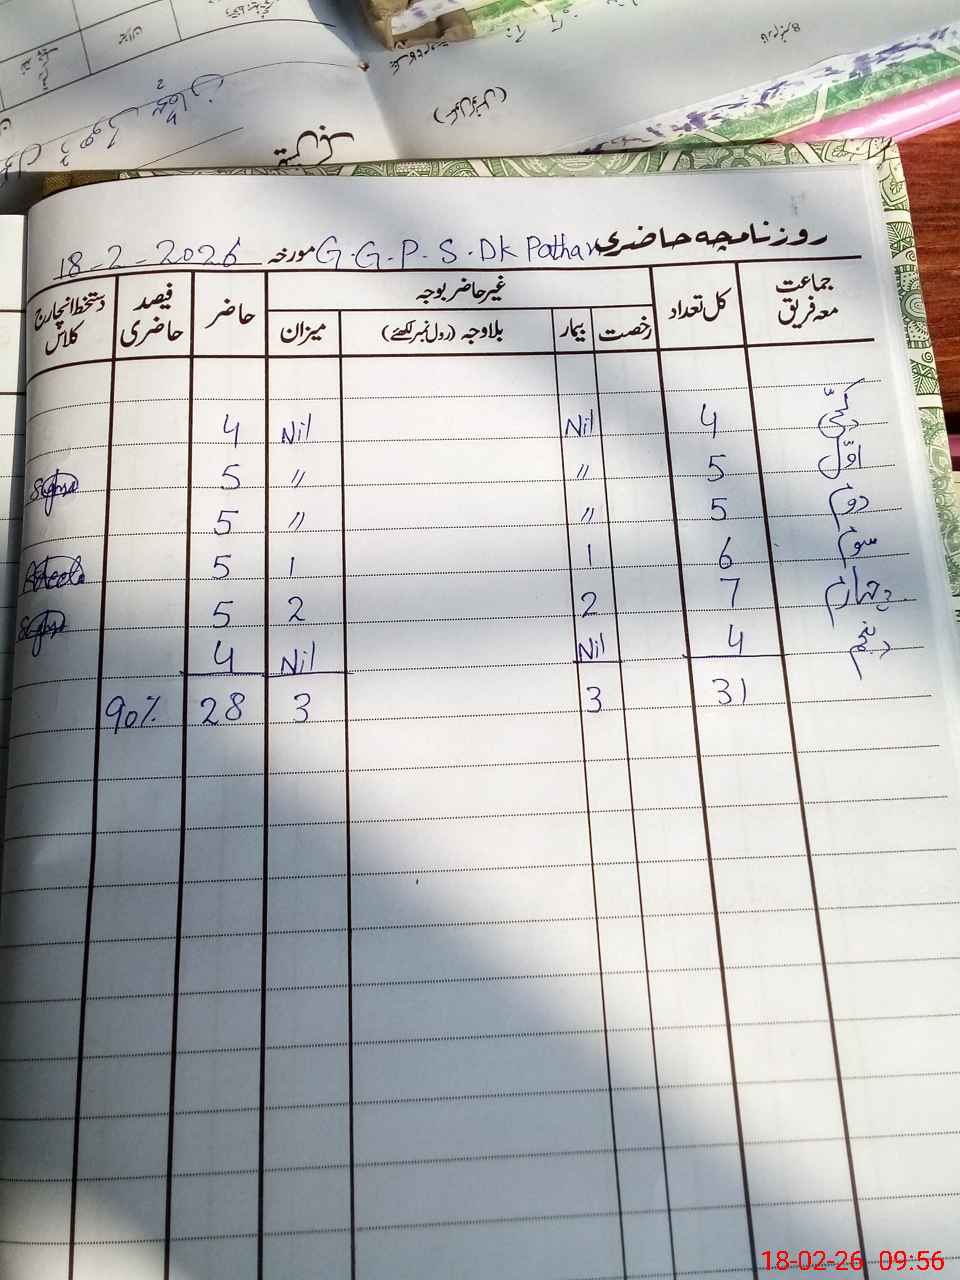 روزنامچہ حاضری G.G.P.S.Dk Pathan مورخہ 18-2-2026
جماعت معہ فریق کل تعداد غیر حاضر بوجہ حاضر فیصد حاضری دستخط انچارج کلاس
رخصت بیمار بلاوجہ (رول نمبر لکھئے) میزان
کچی 4 Nil Nil 4
اوّل 5 〃 〃 5
دوم 5 〃 〃 5
سوم 6 1 1 5
چہارم 7 2 2 5
پنجم 4 Nil Nil 4
31 3 3 28 90%
18-02-26 09:56